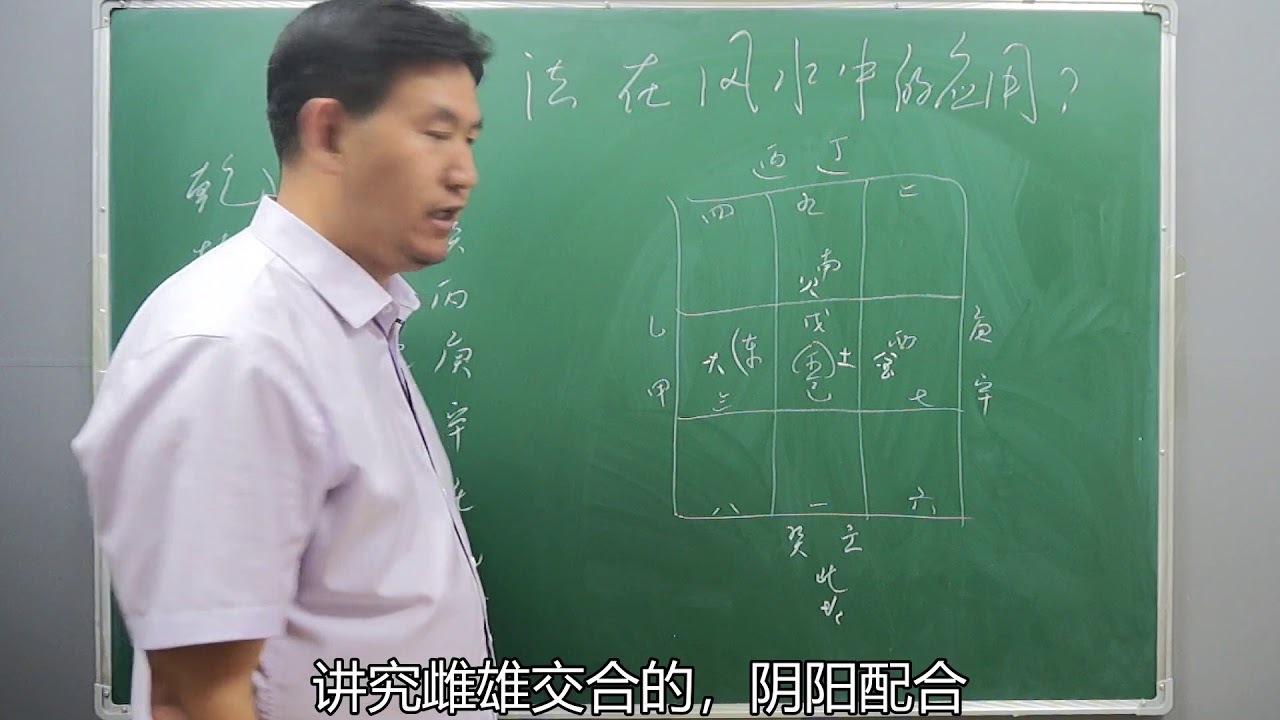 法在风水中的应用?
丙 丁
乾
四 九 二
南
火
丙
乙 戊 庚
木 东 五 土 西 金
庚
甲 三 己 七 辛
辛
八 一 六
癸 壬
北
水
讲究雌雄交合的，阴阳配合